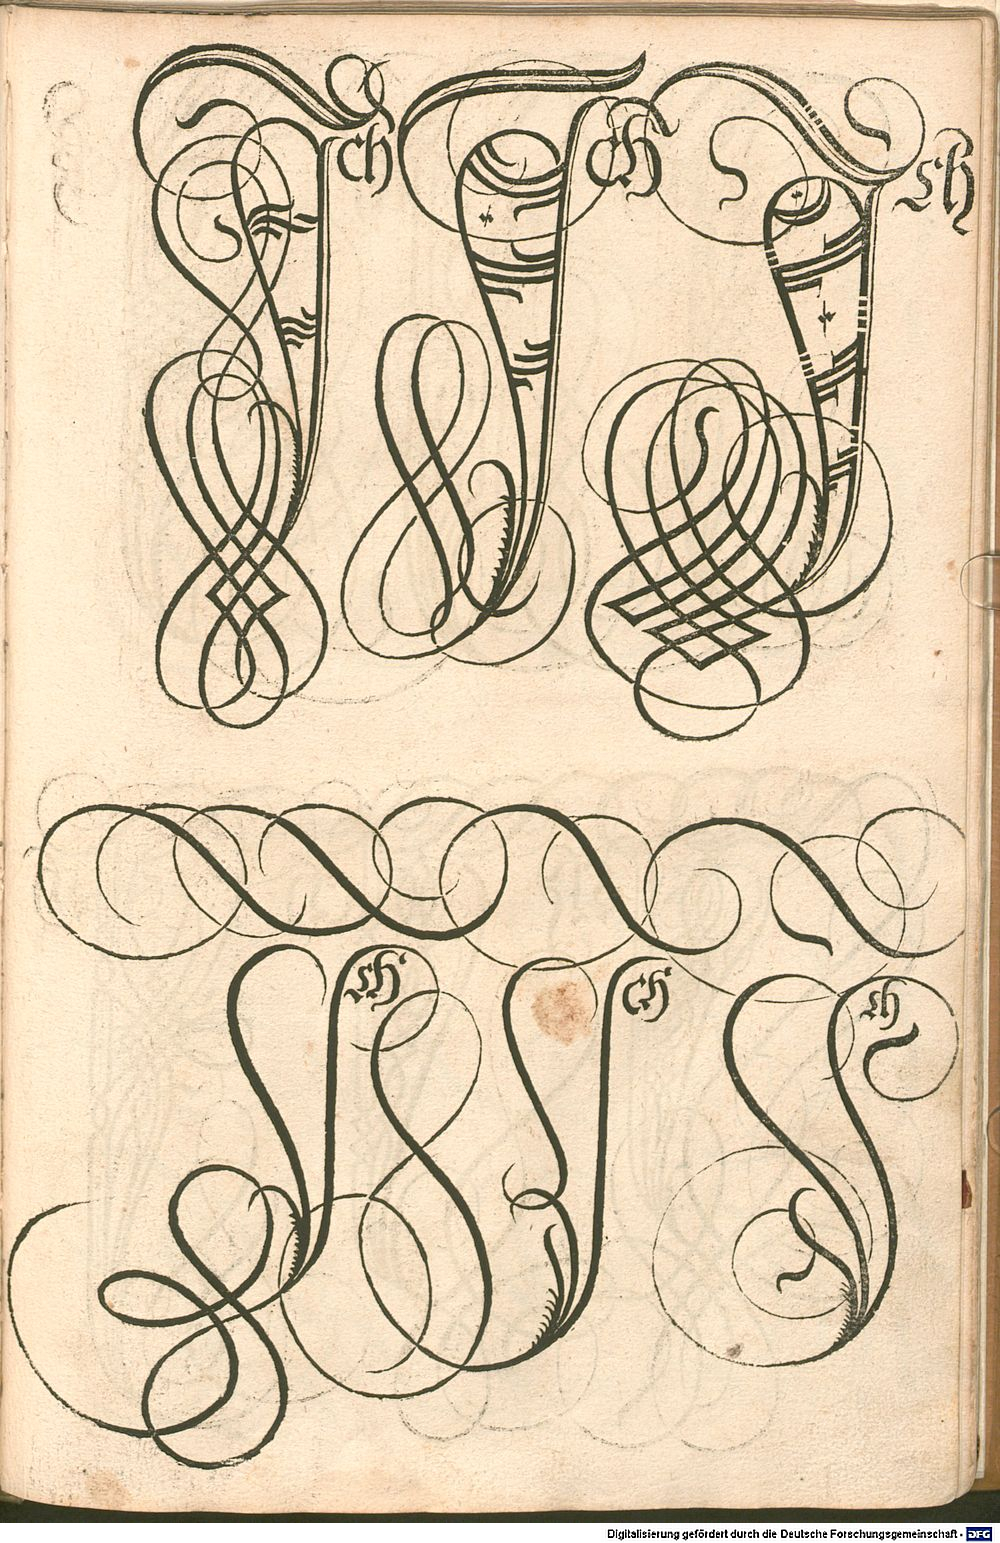 Jch Jch Jch
Jch Jch Jch
Digitalisierung gefördert durch die Deutsche Forschungsgemeinschaft - DFG